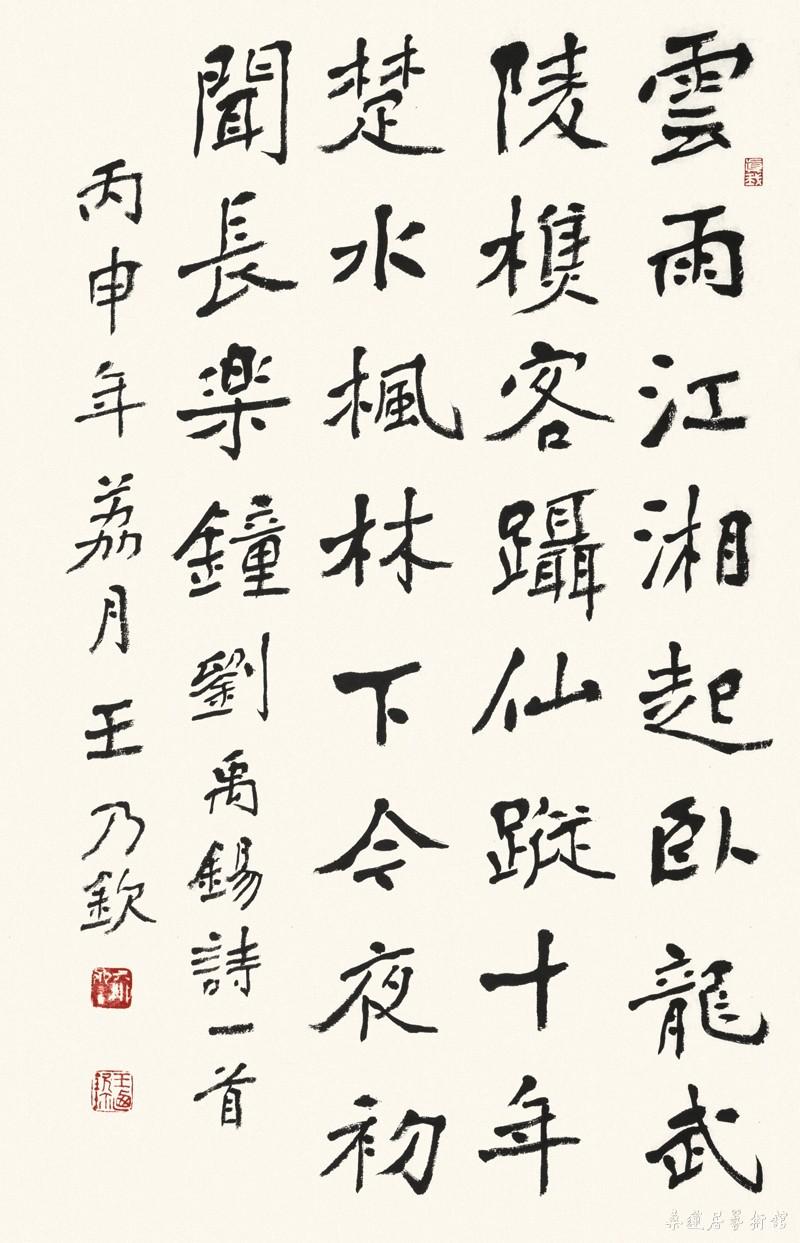 雲雨江湘起臥龍武
陵樵客躡仙蹤十年
楚水楓林下今夜初
聞長楽鐘劉禹錫詩一首
丙申年荔月王乃欽
桑蓮居藝術館